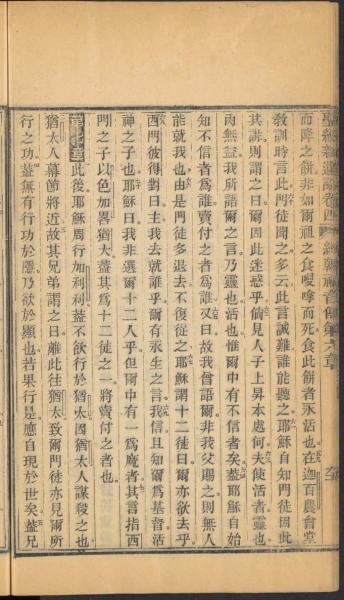 聖經新遺詔卷四 約翰福音傳第六章
而降之餅非如爾祖之食嗼嗱而死食此餅者永活也在迦百農會堂
教訓時言此門徒聞之多云此言誠難誰能聽之耶穌自知門徒因此
其誹則謂之曰爾因此迷惑乎倘見人子上昇本處何夫使活者靈也
肉無益我所語爾之言乃靈也活也惟爾中有不信者矣蓋耶穌自始
知不信者為誰賣付之者為誰又曰故我曾語爾非我父賜之則無人
能就我也由是門徒多退去不復從之耶穌謂十二徒曰爾亦欲去乎
西門彼得對曰主我去就誰乎爾有永生之言我信且知爾為基督活
神之子也耶穌曰我非選爾十二人乎但爾中有一為魔者其言指西
門之子以色加畧猶大蓋其為十二徒之一將賣付之者也
第七章此後耶穌周行加利利蓋不欲行於猶太因猶太人謀殺之也
猶太人幕節將近故其兄弟謂之曰離此往猶太致爾門徒亦見爾所
行之功蓋無有行功於隱乃欲於顯也若果行是應自現於世矣蓋兄